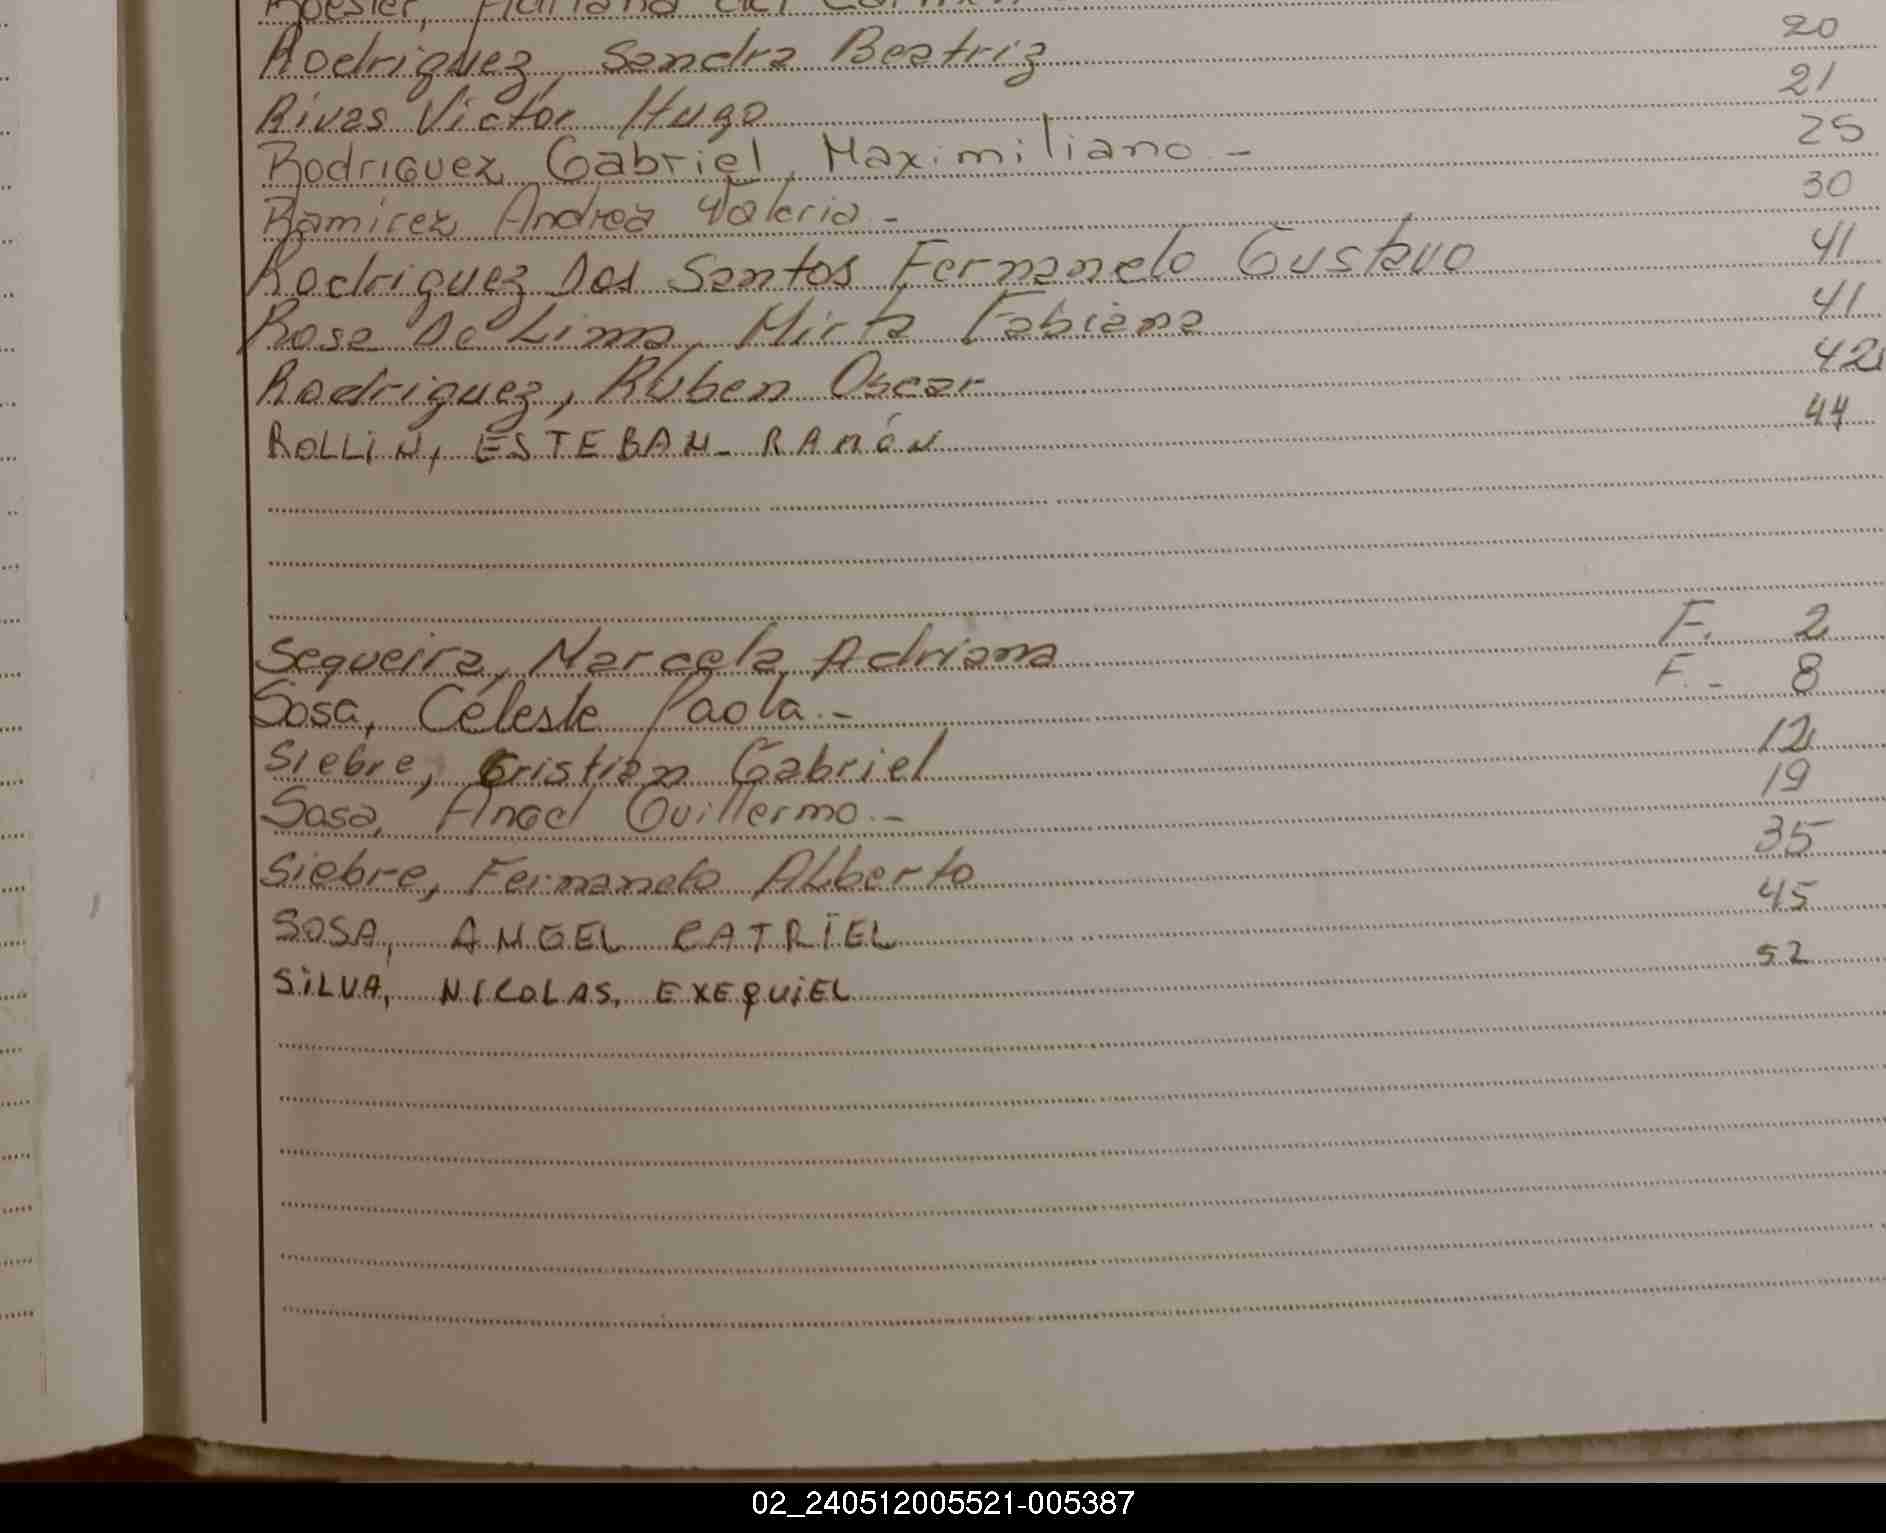 Roesler, Adriana del Carmen
Rodriguez, Sandra Beatriz 20
Rivas Victor Hugo 21
Rodriguez, Gabriel, Maximiliano.- 25
Ramirez, Andrea Valeria.- 30
Rodriguez Dos Santos Fernando Gustavo 41
Rosa De Lima, Mirta Fabiana 41
Rodriguez, Ruben Oscar 42
ROLLIN, ESTEBAN RAMÓN 44
Sequeira, Marcela Adriana F. 2
Sosa, Celeste Paola.- F.- 8
Siebre, Cristian Gabriel 12
Sosa, Angel Guillermo.- 19
Siebre, Fernando Alberto 35
SOSA, ANGEL CATRIEL 45
SILVA, NICOLAS, EXEQUIEL 52
02_240512005521-005387